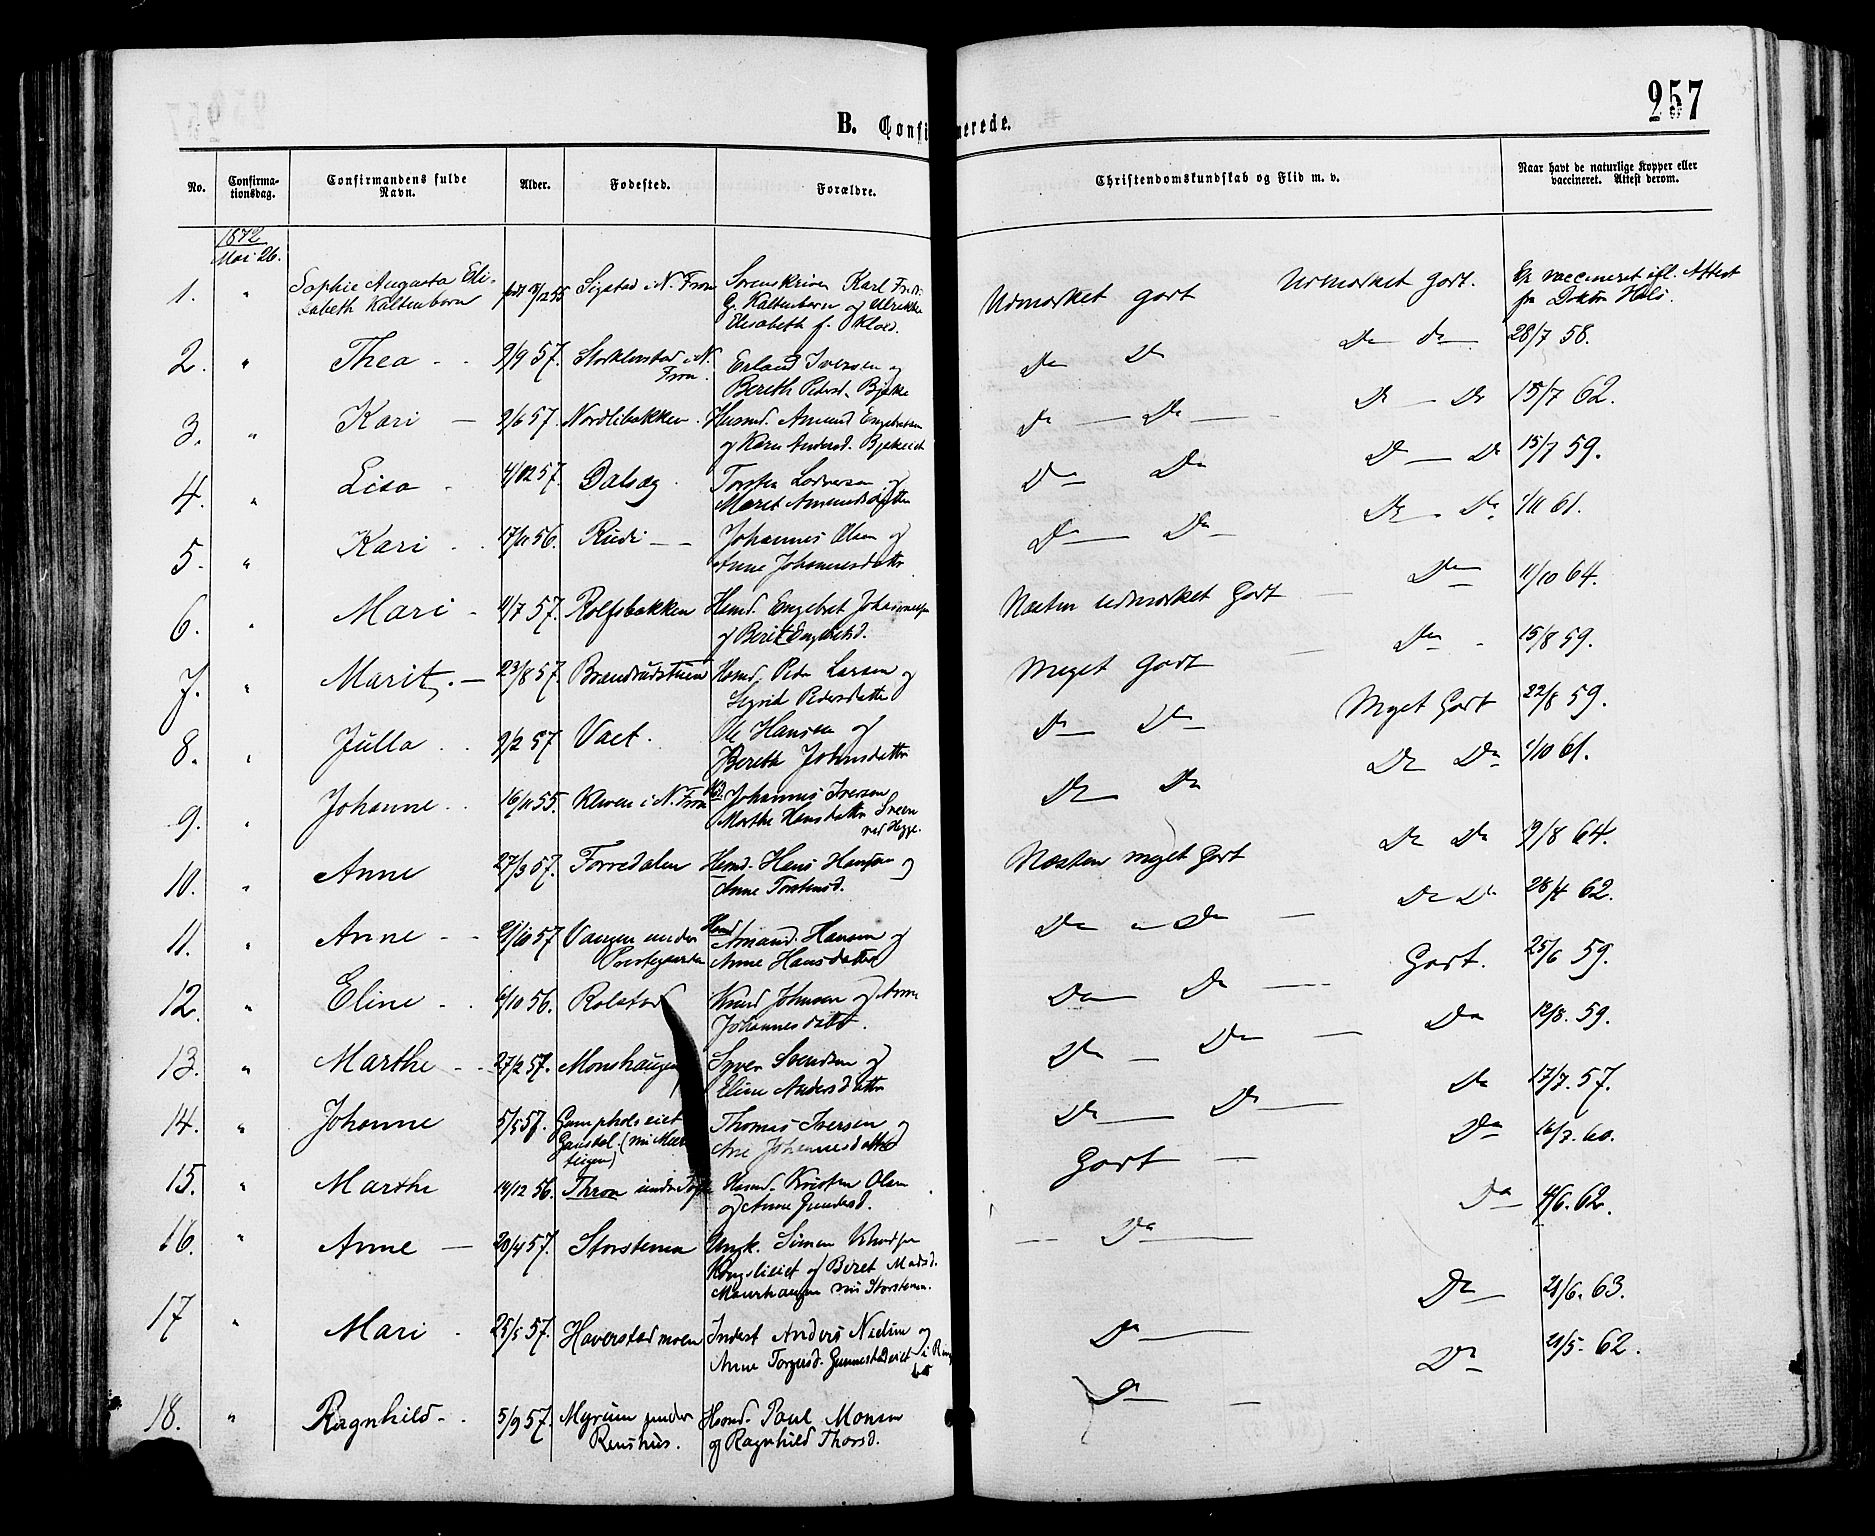 257
B. Confirmerede.
No.
Confirma-
tionsdag.
Confirmandens fulde
Navn.
Alder.
Fødested.
Forældre.
Christendomskundskab og Flid m. v.
Naar havt de naturlige Kopper eller
vaccineret. Attest derom.
1872
Mai 26.
1. " Sophie Augusta Eli-
sabeth Kaltenborn
født 12 55 Sygstad i N. Fron Sorenskriver Karl Fredr.
G. Kaltenborn og Ulrikke
Elisabeth f. Kloed.
Udmærket godt Udmærket godt. Er vaccineret ifl. Attest
fra Doktor Hols.
2. " Thea - - 9/9 57. Storklevstad i N.
Fron.
Erland Iversen og
Bereth Pedersd. Bjølke
Do Do Do Do 28/7 58.
3. " Kari - 9/6 57. Nordlibakken. Husmd. Amund Engebretsen
og Kari Andersd. Bjølkeeiet
Do - Do - Do - Do 15/7 62.
4. " Lisa - 4/12 57. Dalseg. Torsten Lodversen og
Marit Amundsdatter
Do Do Do - Do 15/7 59.
5. " Kari - - 17/11 56. Rudi - - Johannes Olsen og
Anne Johannesdatter
Do - Do - Do - Do 1/11 61.
6. " Mari - 4/7 57. Rolfsbakken Hsmd. Engebret Johannessen
og Berit Engebretsd.
Næsten udmærket Godt - Do 11/10 64.
7. " Marit. - 23/8 57. Brandrudstuen Hsmd. Peder Larsen og
Sigrid Pedersdatter
Meget Godt - Do - 15/8 59.
8. " Julla - - 9/2 57 Vaet. Ole Hansen og
Bereth Johnsdatter
Do - Do - Meget Godt 22/8 59.
9. " Johanne - - 16/11 55. Kleven i N. Fron Johannes Iversen
Marthe Hansdatter Sveen
ved Hegge.
Do - Do Do Do 1/10 61.
10. " Anne 27/3 57. Forredalen Hsmd. Hans Hansen og
Anne Torstensd.
Næsten meget Godt Do Do 19/8 64.
11. " Anne - - 9/10 57. Vangen under
Prestegaarden
Hsmd. Amund Hansen og
Anne Hansdatter
Do - Do - Do Do 28/4 62.
12. " Eline - - 6/10 56. Rolstad Knud Johnsen og Anne
Johannesdatt.
Do - Do - Godt. 25/6 59.
13. " Marthe - - 27/2 57. Monshaugen Syver Svendsen og
Eline Andersdatter
Do - Do - Do 12/8. 59.
14. " Johanne 5/5 57. Gompholseiet
Gausdal. (nu
teigen)
Thomas Iversen og
Ane Johannesdatter
Do - Do - Do 17/7. 57.
15. " Marthe 14/12 56. Thron under Hsmd. Kristen Olsen
og Anne Gundersd.
Godt - Do 16/7. 60.
16. " Anne - 20/4 57. Storstenen Ungk. Simen Knudsen
Kongslieiet og Beret Madsd.
Maurhaugen nu Storstenen.
- - Do - Do 4/6. 62.
17 " Mari - 25/5 57. Haverstadmoen Inderst Anders Nielsen og
Anne Torgersd. Gunnestadeiet i Ringebo
Do - Do - 21/6. 63.
18. " Ragnhild - - 5/9 57. Myrum under
Renshus.
Hsmd. Paul Monsen
og Ragnhild Thorsd.
Do - - Do 21/5. 62.